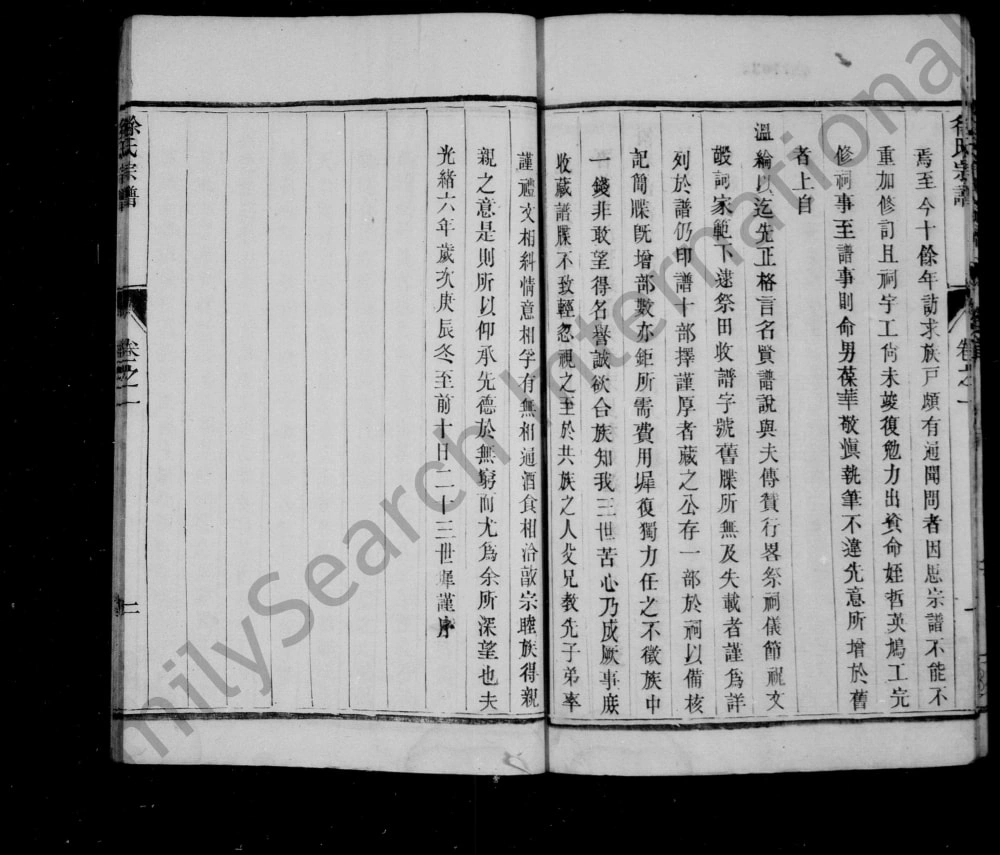 焉至今十餘年訪求族戸頗有通聞問者因思宗譜不能不
重加修訂且祠宇工尙未竣復勉力出貲命姪哲英鳩工完
修祠事至譜事則命男葆華敬愼執筆不違先意所增於舊
者上自
溫綸以迄先正格言名賢譜說與夫傳贊行畧祭祠儀節祝文
嘏詞家範下逮祭田收譜字號舊牒所無及失載者謹爲詳
列於譜仍印譜十部擇謹厚者藏之公存一部於祠以備核
記簡牒旣增部數亦鉅所需費用墀復獨力任之不徵族中
一錢非敢望得名譽誠欲合族知我三世苦心乃成厥事庶
收藏譜牒不致輕忽視之至於共族之人父兄教先子弟率
謹禮文相糾情意相孚有無相通酒食相洽敦宗睦族得親
親之意是則所以仰承先德於無窮而尤爲余所深望也夫
光緒六年歲次庚辰冬至前十日二十三世墀謹序
徐氏宗譜
卷之一
二
徐氏宗譜
卷之一
FamilySearch International